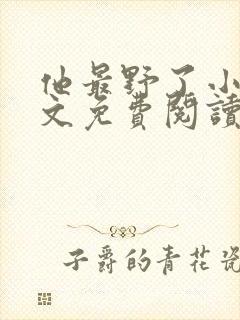 他最野了小
文免費閱讀
子爵的青花瓷